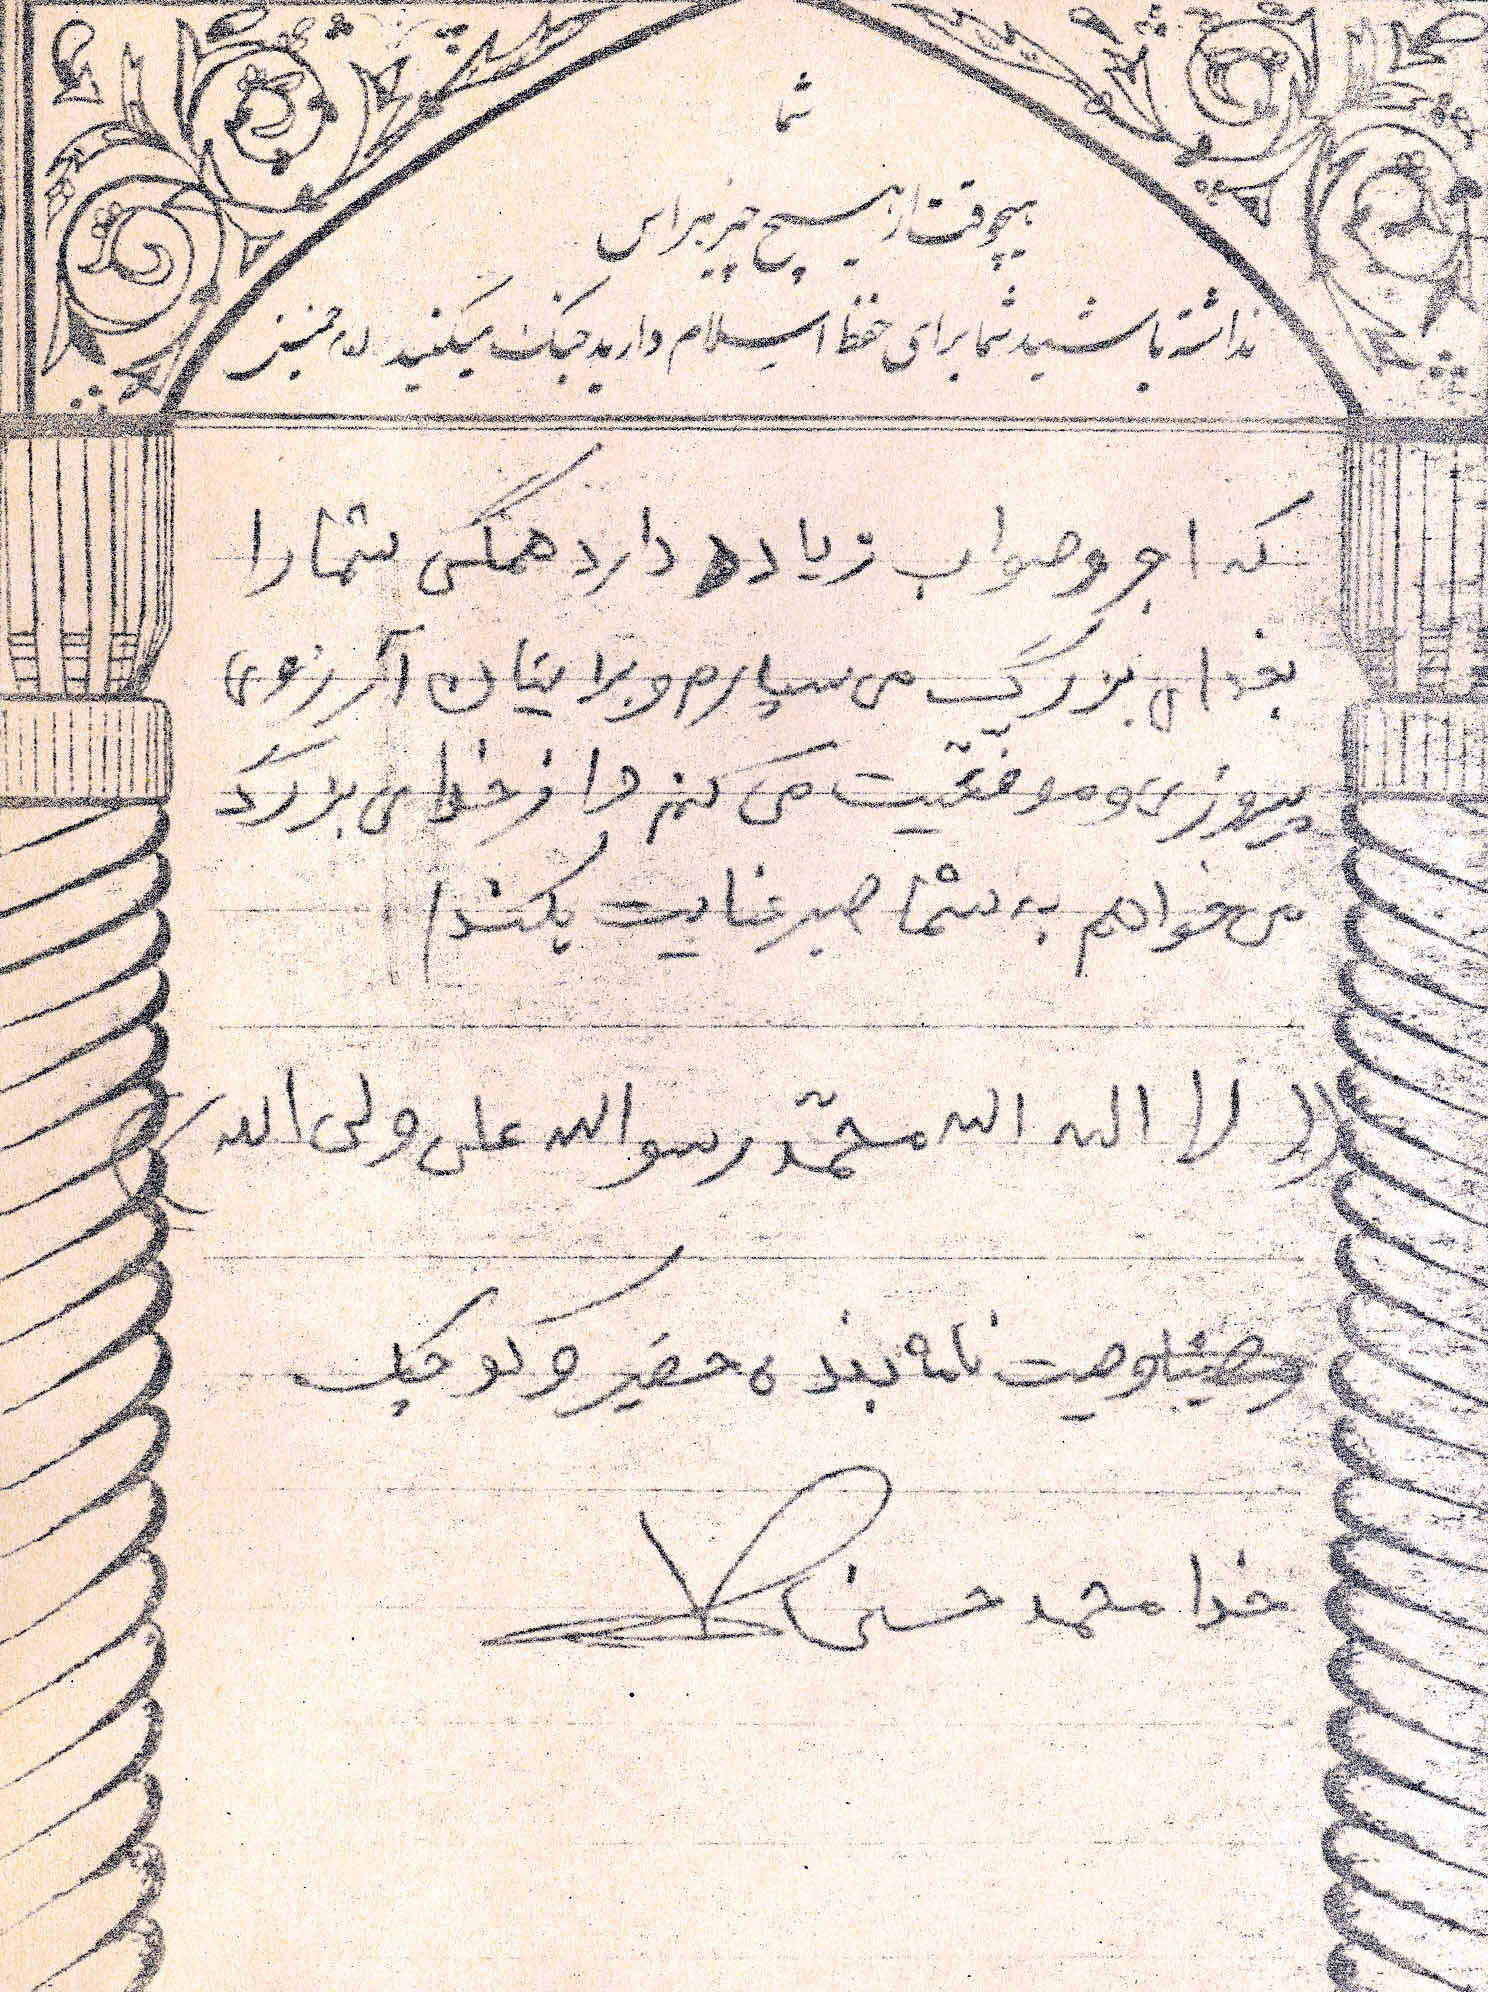 شما
هیچوقت از هیچ چیز هراس
نداشته باشید شما برای حفظ اسلام دارید جنگ میکنید امام خمینی
که اجر و صواب زیاده دارد همگی شما را
بخدای بزرگ می سپارم و برایتان آرزوی
پیروزی و موفقیّت می کنم و از خدای بزرگ
می خواهم به شما صبر عنایت بکند
(( لا اله الله محمّد رسو الله علی ولی الله ))
وصیت نامه بنده حضیر و کوچک
خدا محمد حسنی